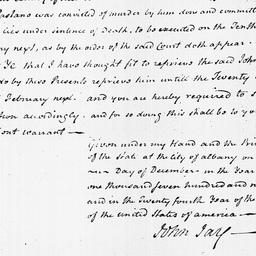 Pastano was convicted of murder by him done and committ
lies under sentence of Death, to be executed on the Tenth
ry next, as by the order of the said Court doth appear.
Ye that I have thought fit to reprieve the said John
do by these Presents reprieve him untill the Twenty
February next. and you are hereby required to
tion accordingly. and for so doing this shall be to yo
ient warrant —
Given under my Hand and the Priv
of the State at the City of albany on
Day of December in the Year
one thousand seven hundred and n
and in the Twenty fourth Year of the
of the united States of america —
John Jay —